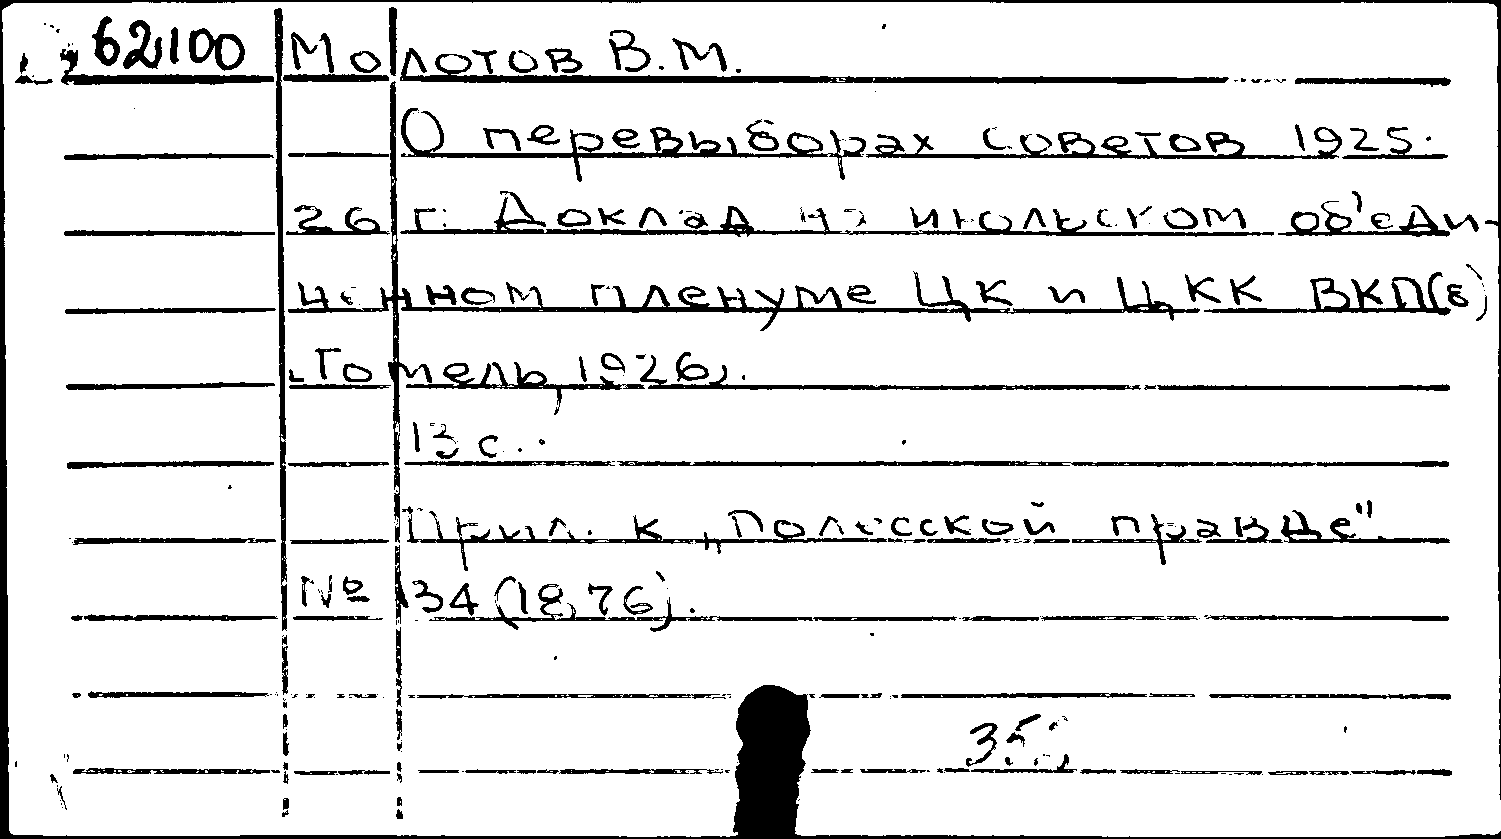 62100 Молотов В.М.
О перевыборах советов 1925-
26 г. Доклад на июльском об'еди-
ненном пленуме ЦК и ЦКК ВКП(б)
Гомель, 1926.
13 с.
Прил. к „Полесской правде".
№ 134 (1876).